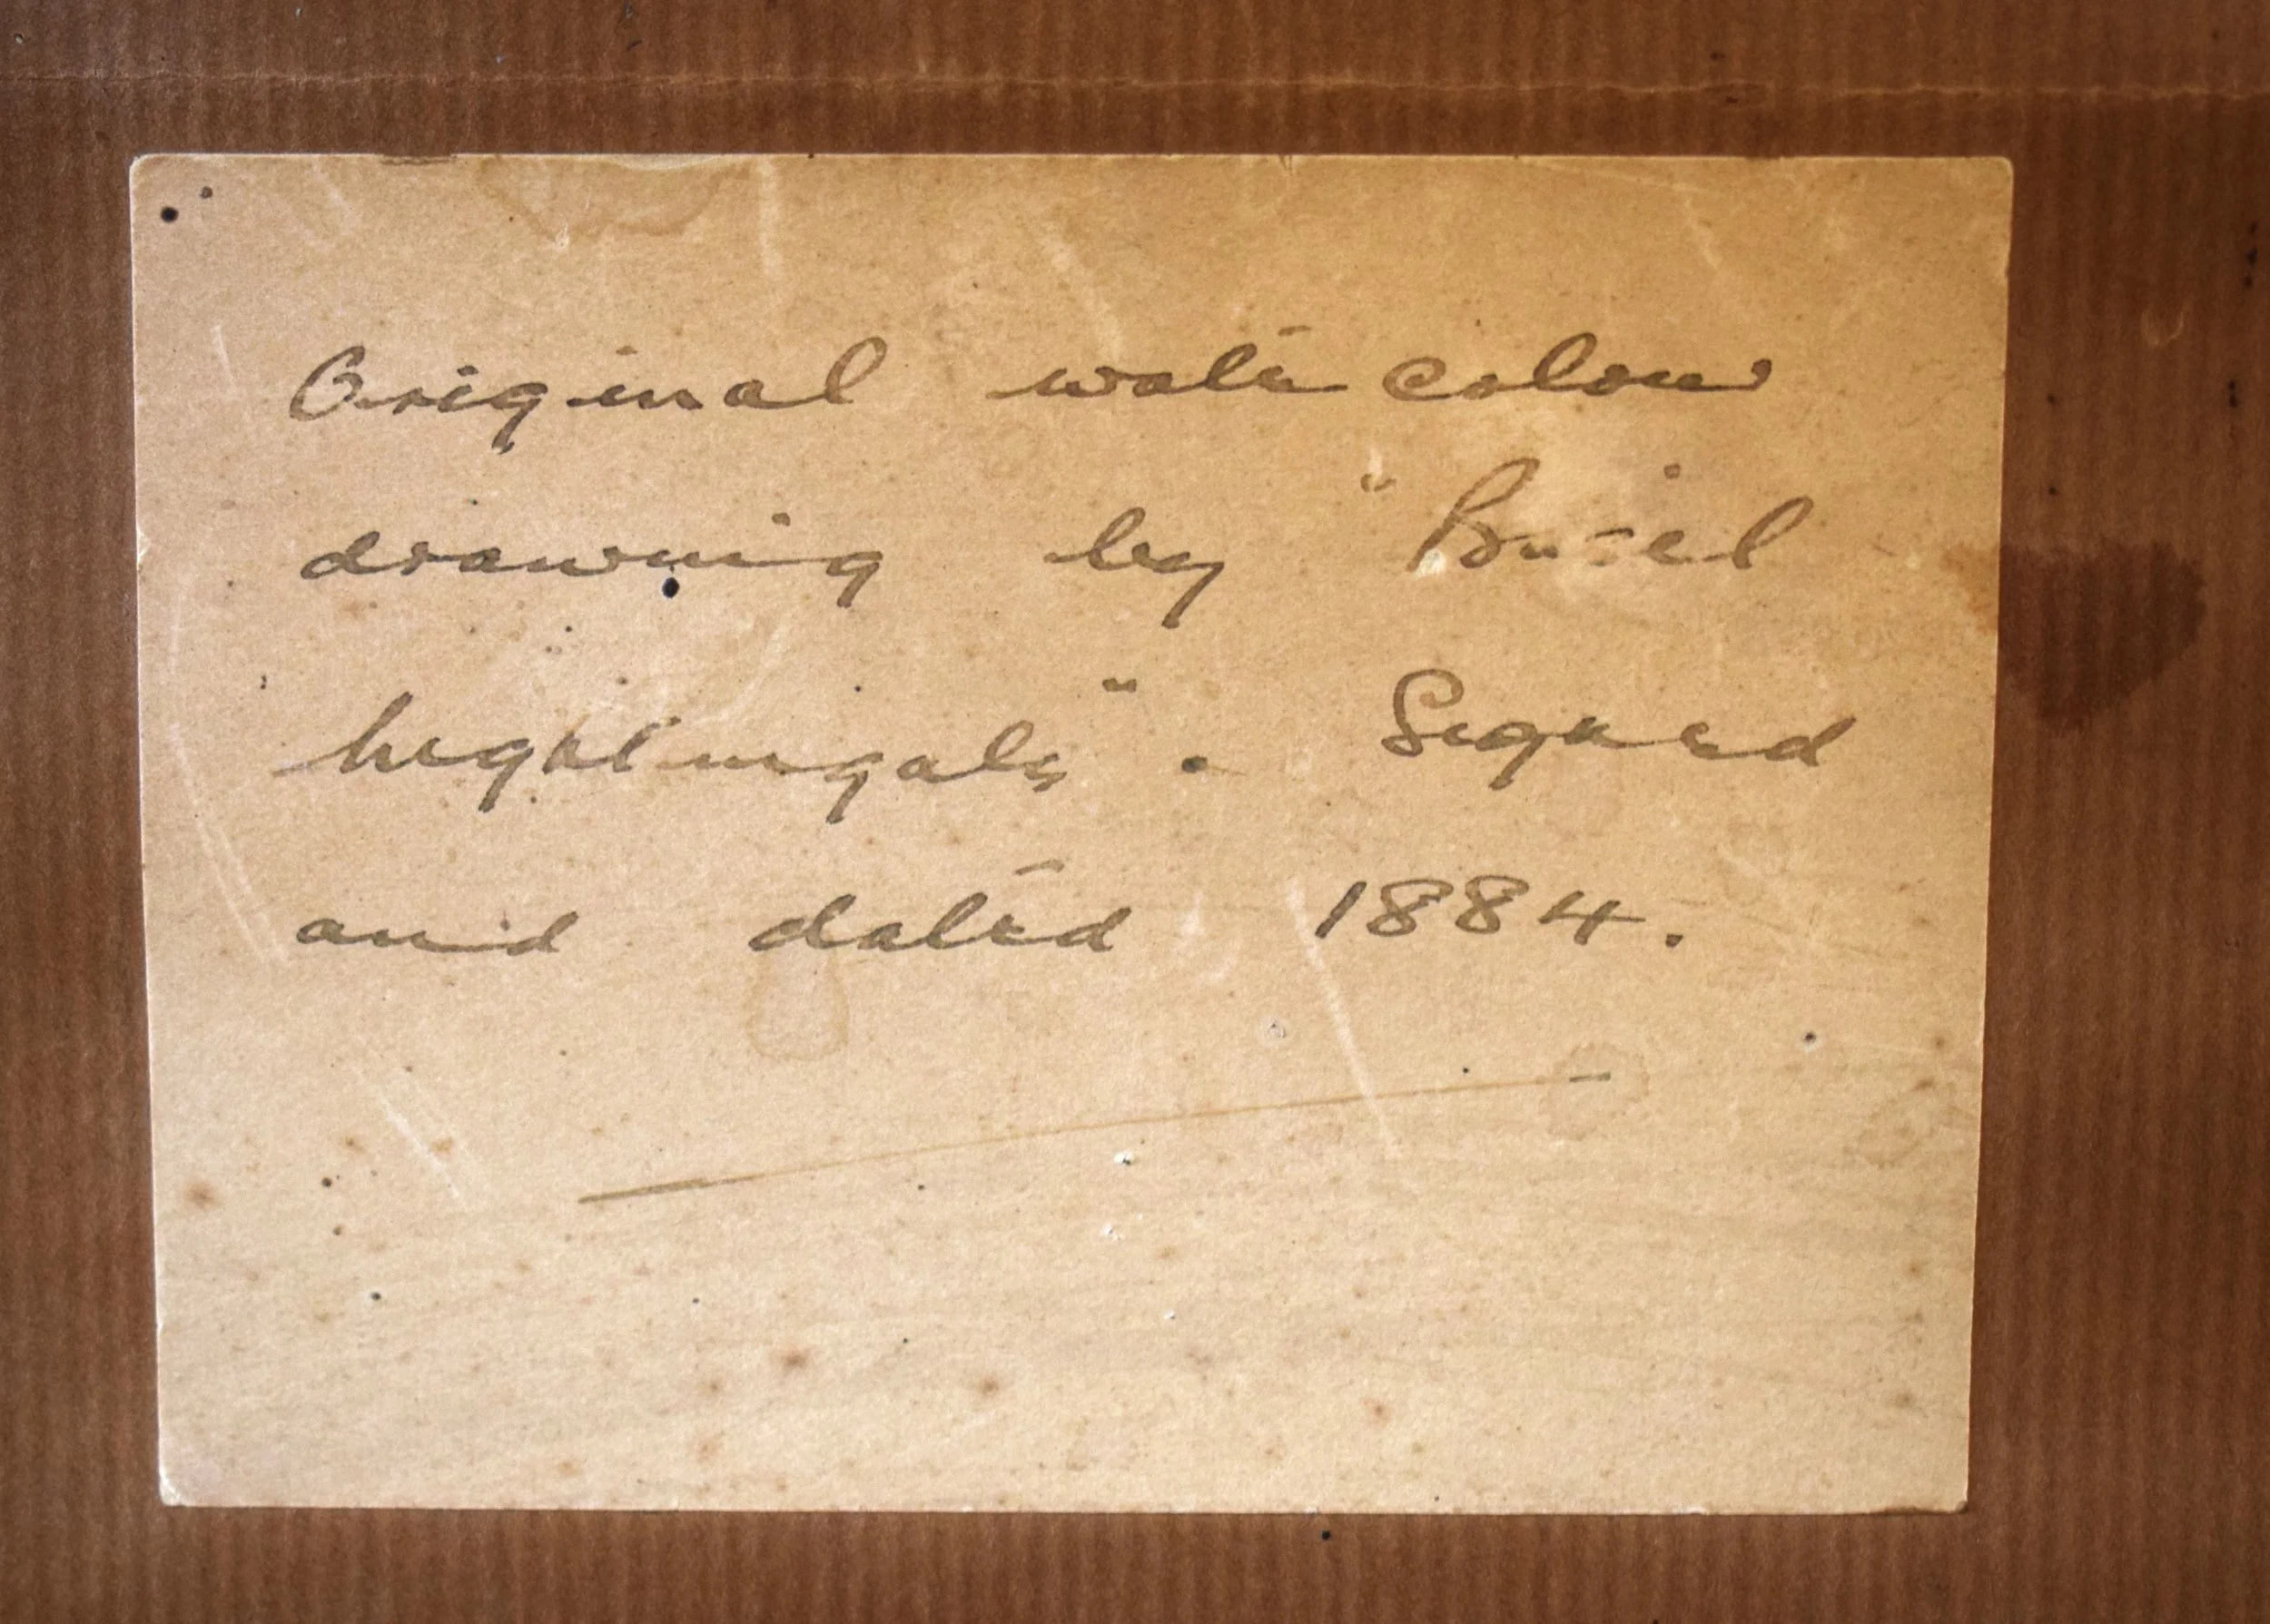 Original water colour
drawing by "Basil
Nightingale". Signed
and dated 1884.